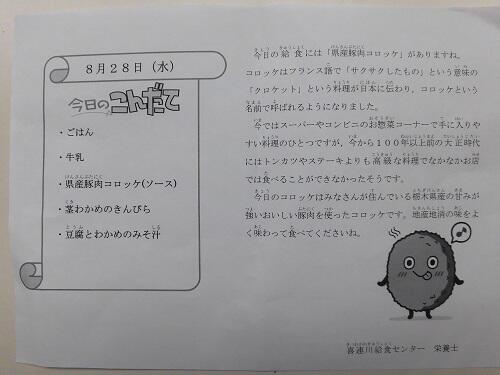 8月28日（水）
今日のこんだて
・ごはん
・牛乳
・県産豚肉コロッケ(ソース)
・茎わかめのきんぴら
・豆腐とわかめのみそ汁
今日の給食には「県産豚肉コロッケ」がありますね。
コロッケはフランス語で「サクサクしたもの」という意味の
「クロケット」という料理が日本に伝わり、コロッケという
名前で呼ばれるようになりました。
今ではスーパーやコンビニのお惣菜コーナーで手に入りや
すい料理のひとつですが、今から100年以上前の大正時代
にはトンカツやステーキよりも高級な料理でなかなかお店
では食べることができなかったそうです。
今日のコロッケはみなさんが住んでいる栃木県産の甘みが
強いおいしい豚肉を使ったコロッケです。地産地消の味をよ
く味わって食べてくださいね。
喜連川給食センター　栄養士